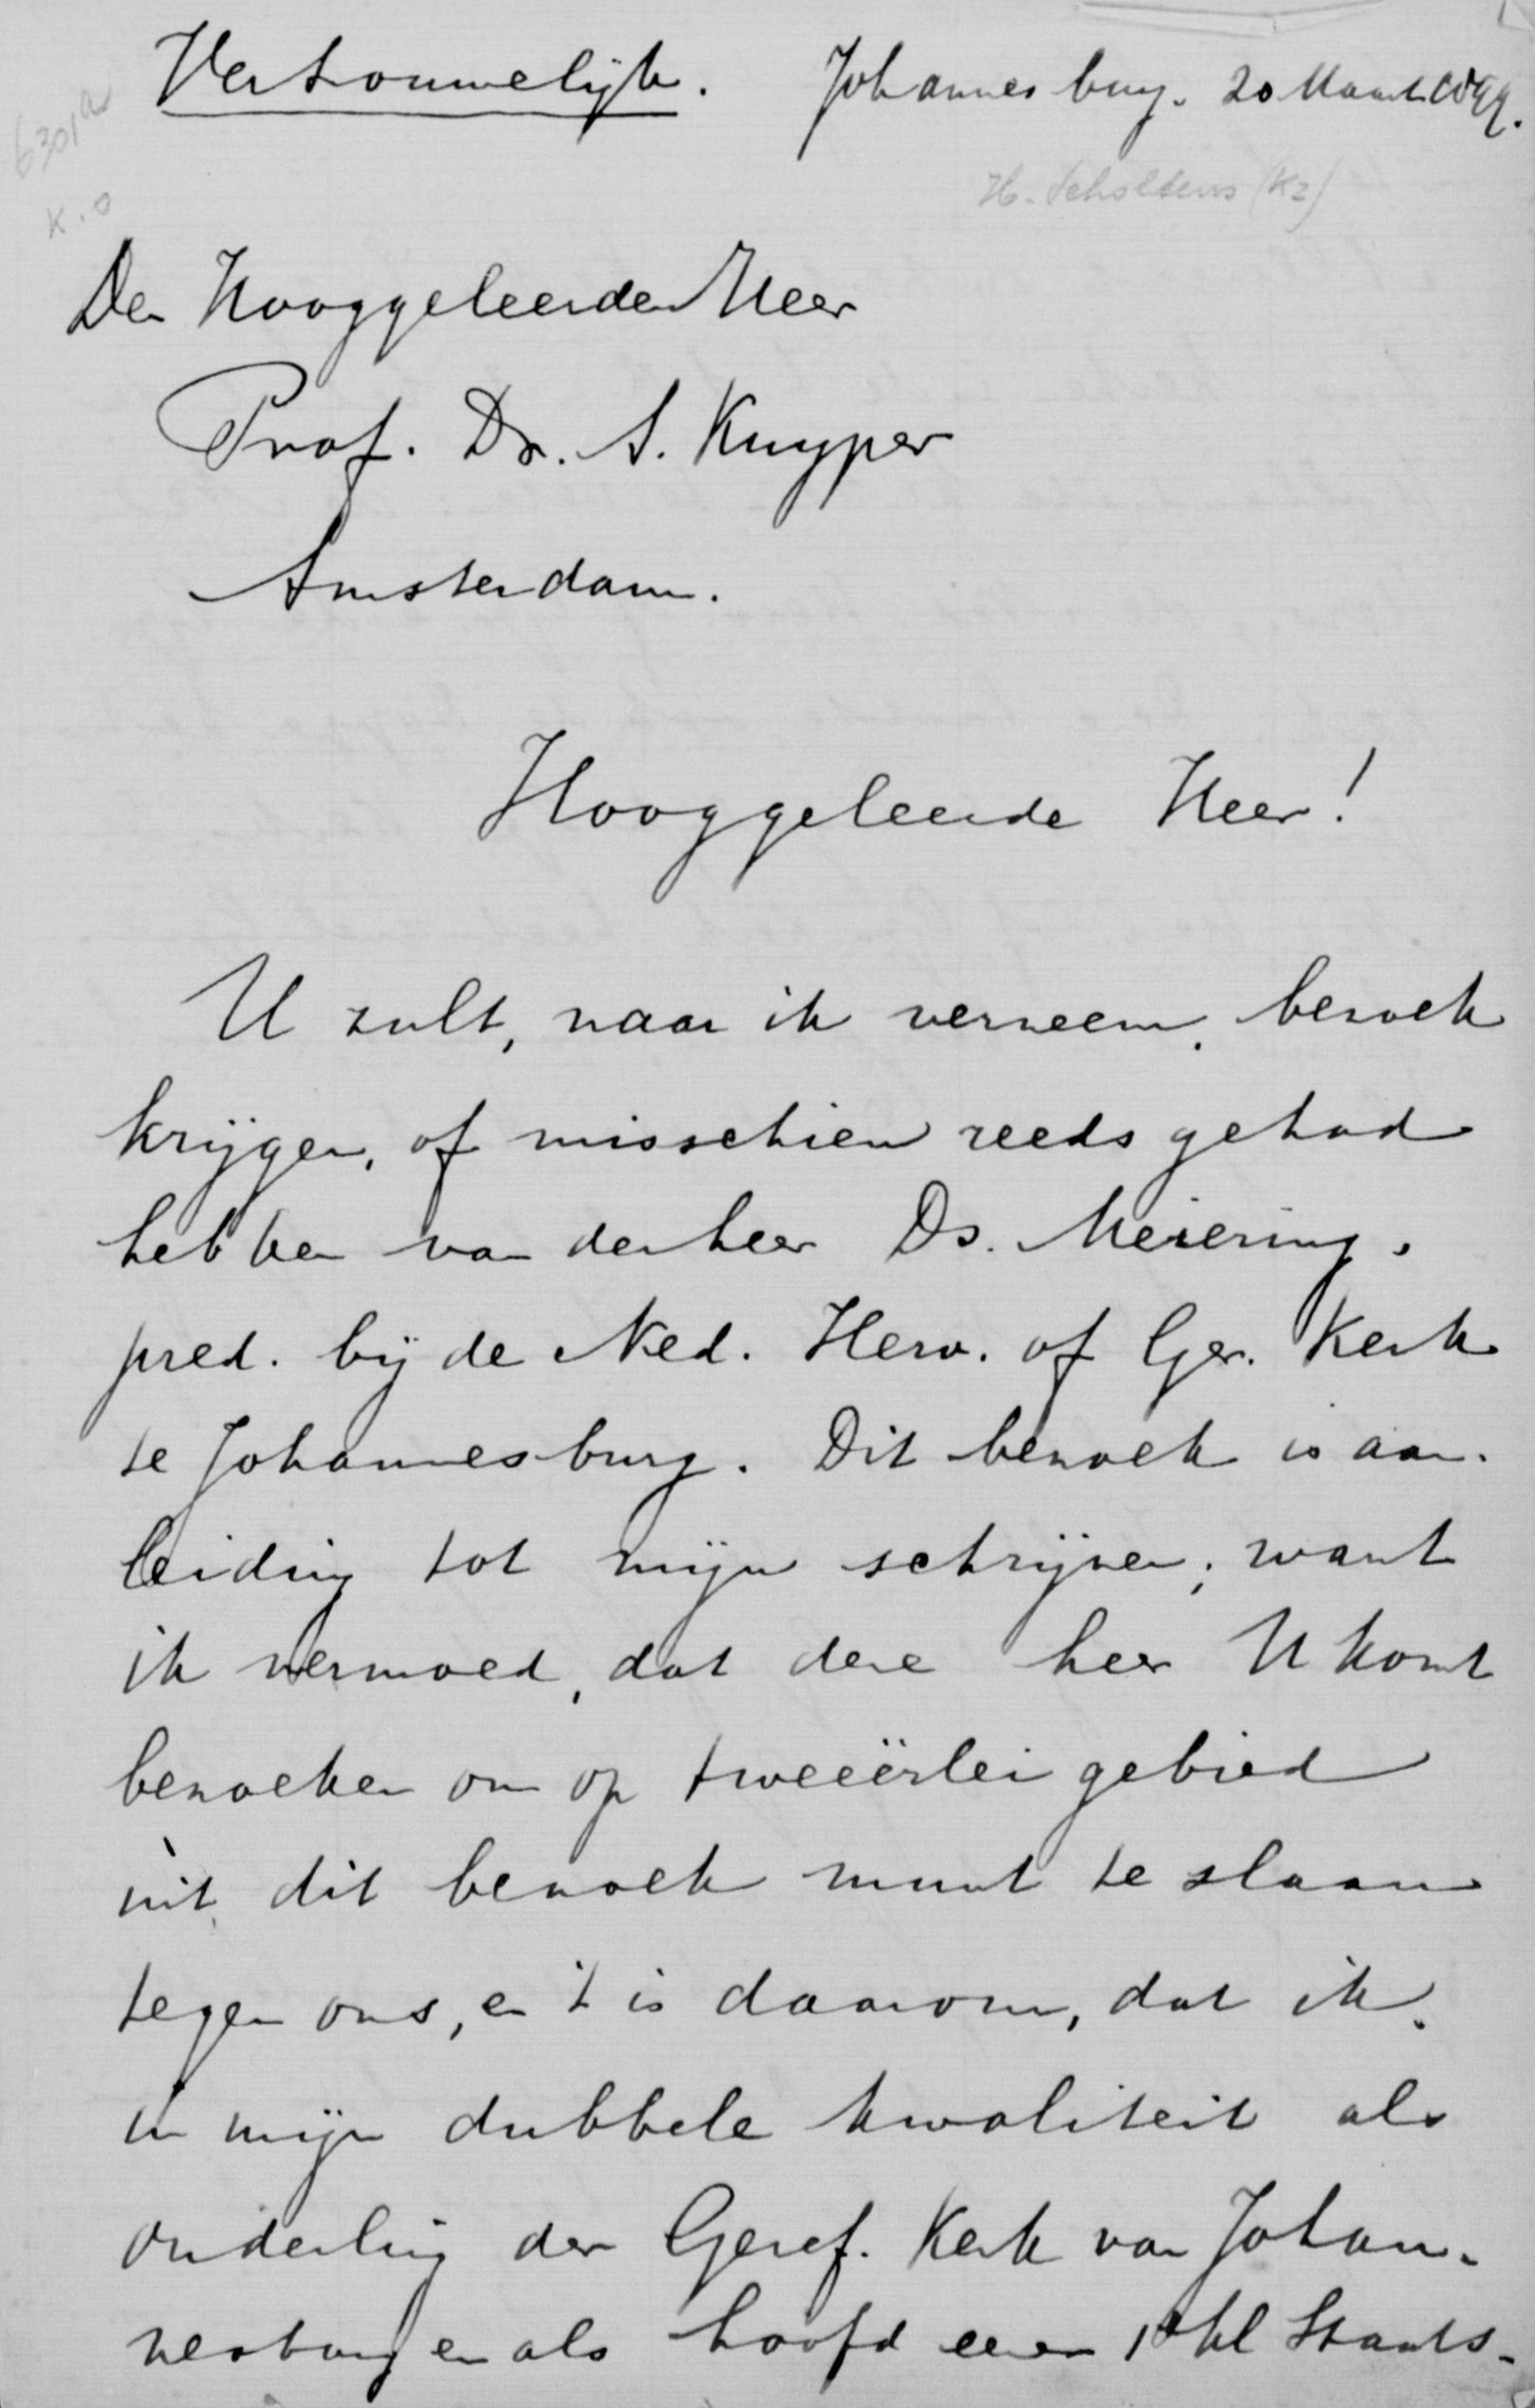 Vertrouwelijk. Johannesburg. 20 Maart 1899.
6301a
K.O
H. Scholtens (Kz)
Den Hooggeleerden Heer
Prof. Dr. A. Kuyper
Amsterdam.
Hooggeleerde Heer!
U zult, naar ik verneem, bezoek
krijgen, of misschien reeds gehad
hebben van den heer Ds. Meiering,
pred. bij de Ned. Herv. of Ger. Kerk
te Johannesburg. Dit bezoek is aan-
leiding tot mijn schrijven; want
ik vermoed, dat deze heer U komt
bezoeken om op tweeërlei gebied
uit dit bezoek munt te slaan
tegen ons, en 't is daarom, dat ik,
in mijn dubbele kwaliteit als
ouderling der Geref. Kerk van Johan-
nesburg en als hoofd eener 1e kl Staats-